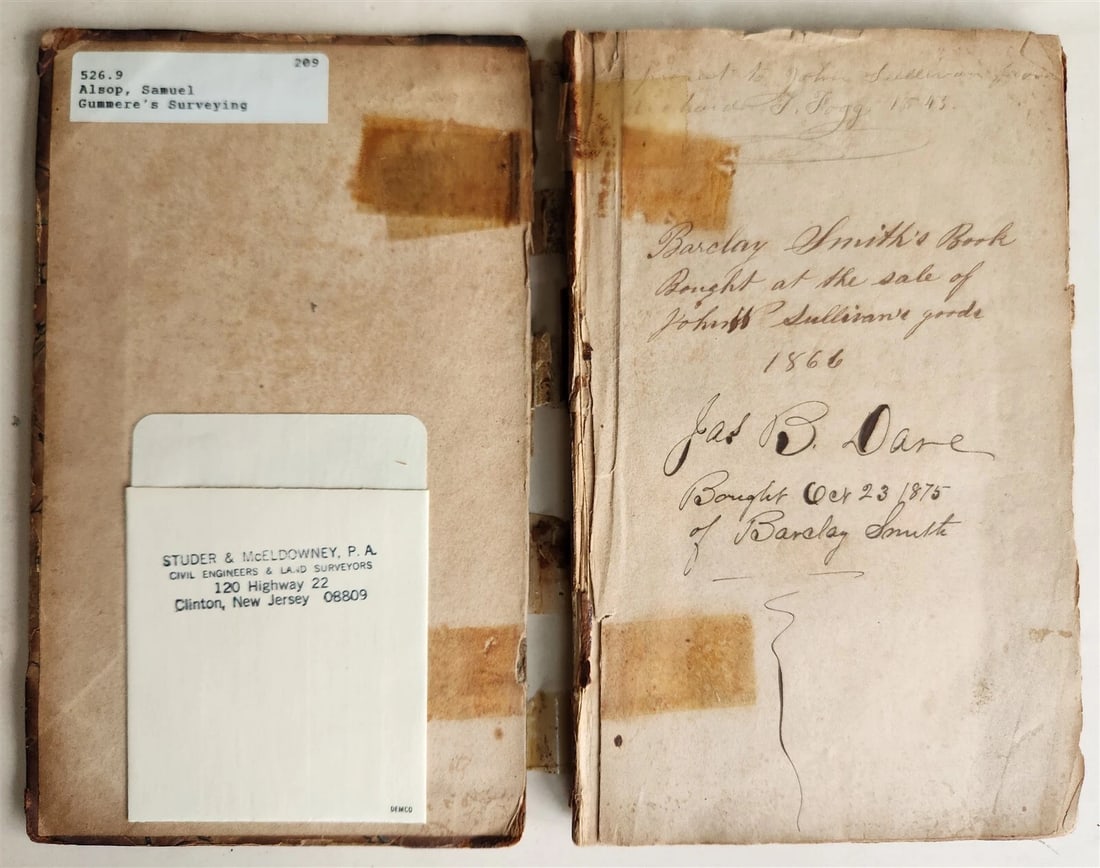 209
526.9
Alsop, Samuel
Gummere's Surveying
STUDER & McELDOWNEY, P. A.
CIVIL ENGINEERS & LAND SURVEYORS
120 Highway 22
Clinton, New Jersey 08809
DEMCO
to John Sullivan from
T. Fogg 1843.
Barclay Smith's Book
Bought at the sale of
Sullivan's goods
1866
Jas B. Dare
Bought Oct 23 1875
of Barclay Smith